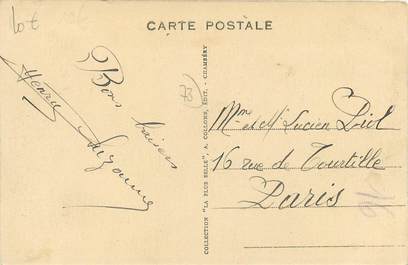 10 €
CARTE POSTALE
Bons baisers
Henri
Suzanne
73
COLLECTION "LA PLUS BELLE", A. COLLONS, ÉDIT. - CHAMBÉRY
Mme et Mr Lucien Diol
16 rue de Tourtille
Paris